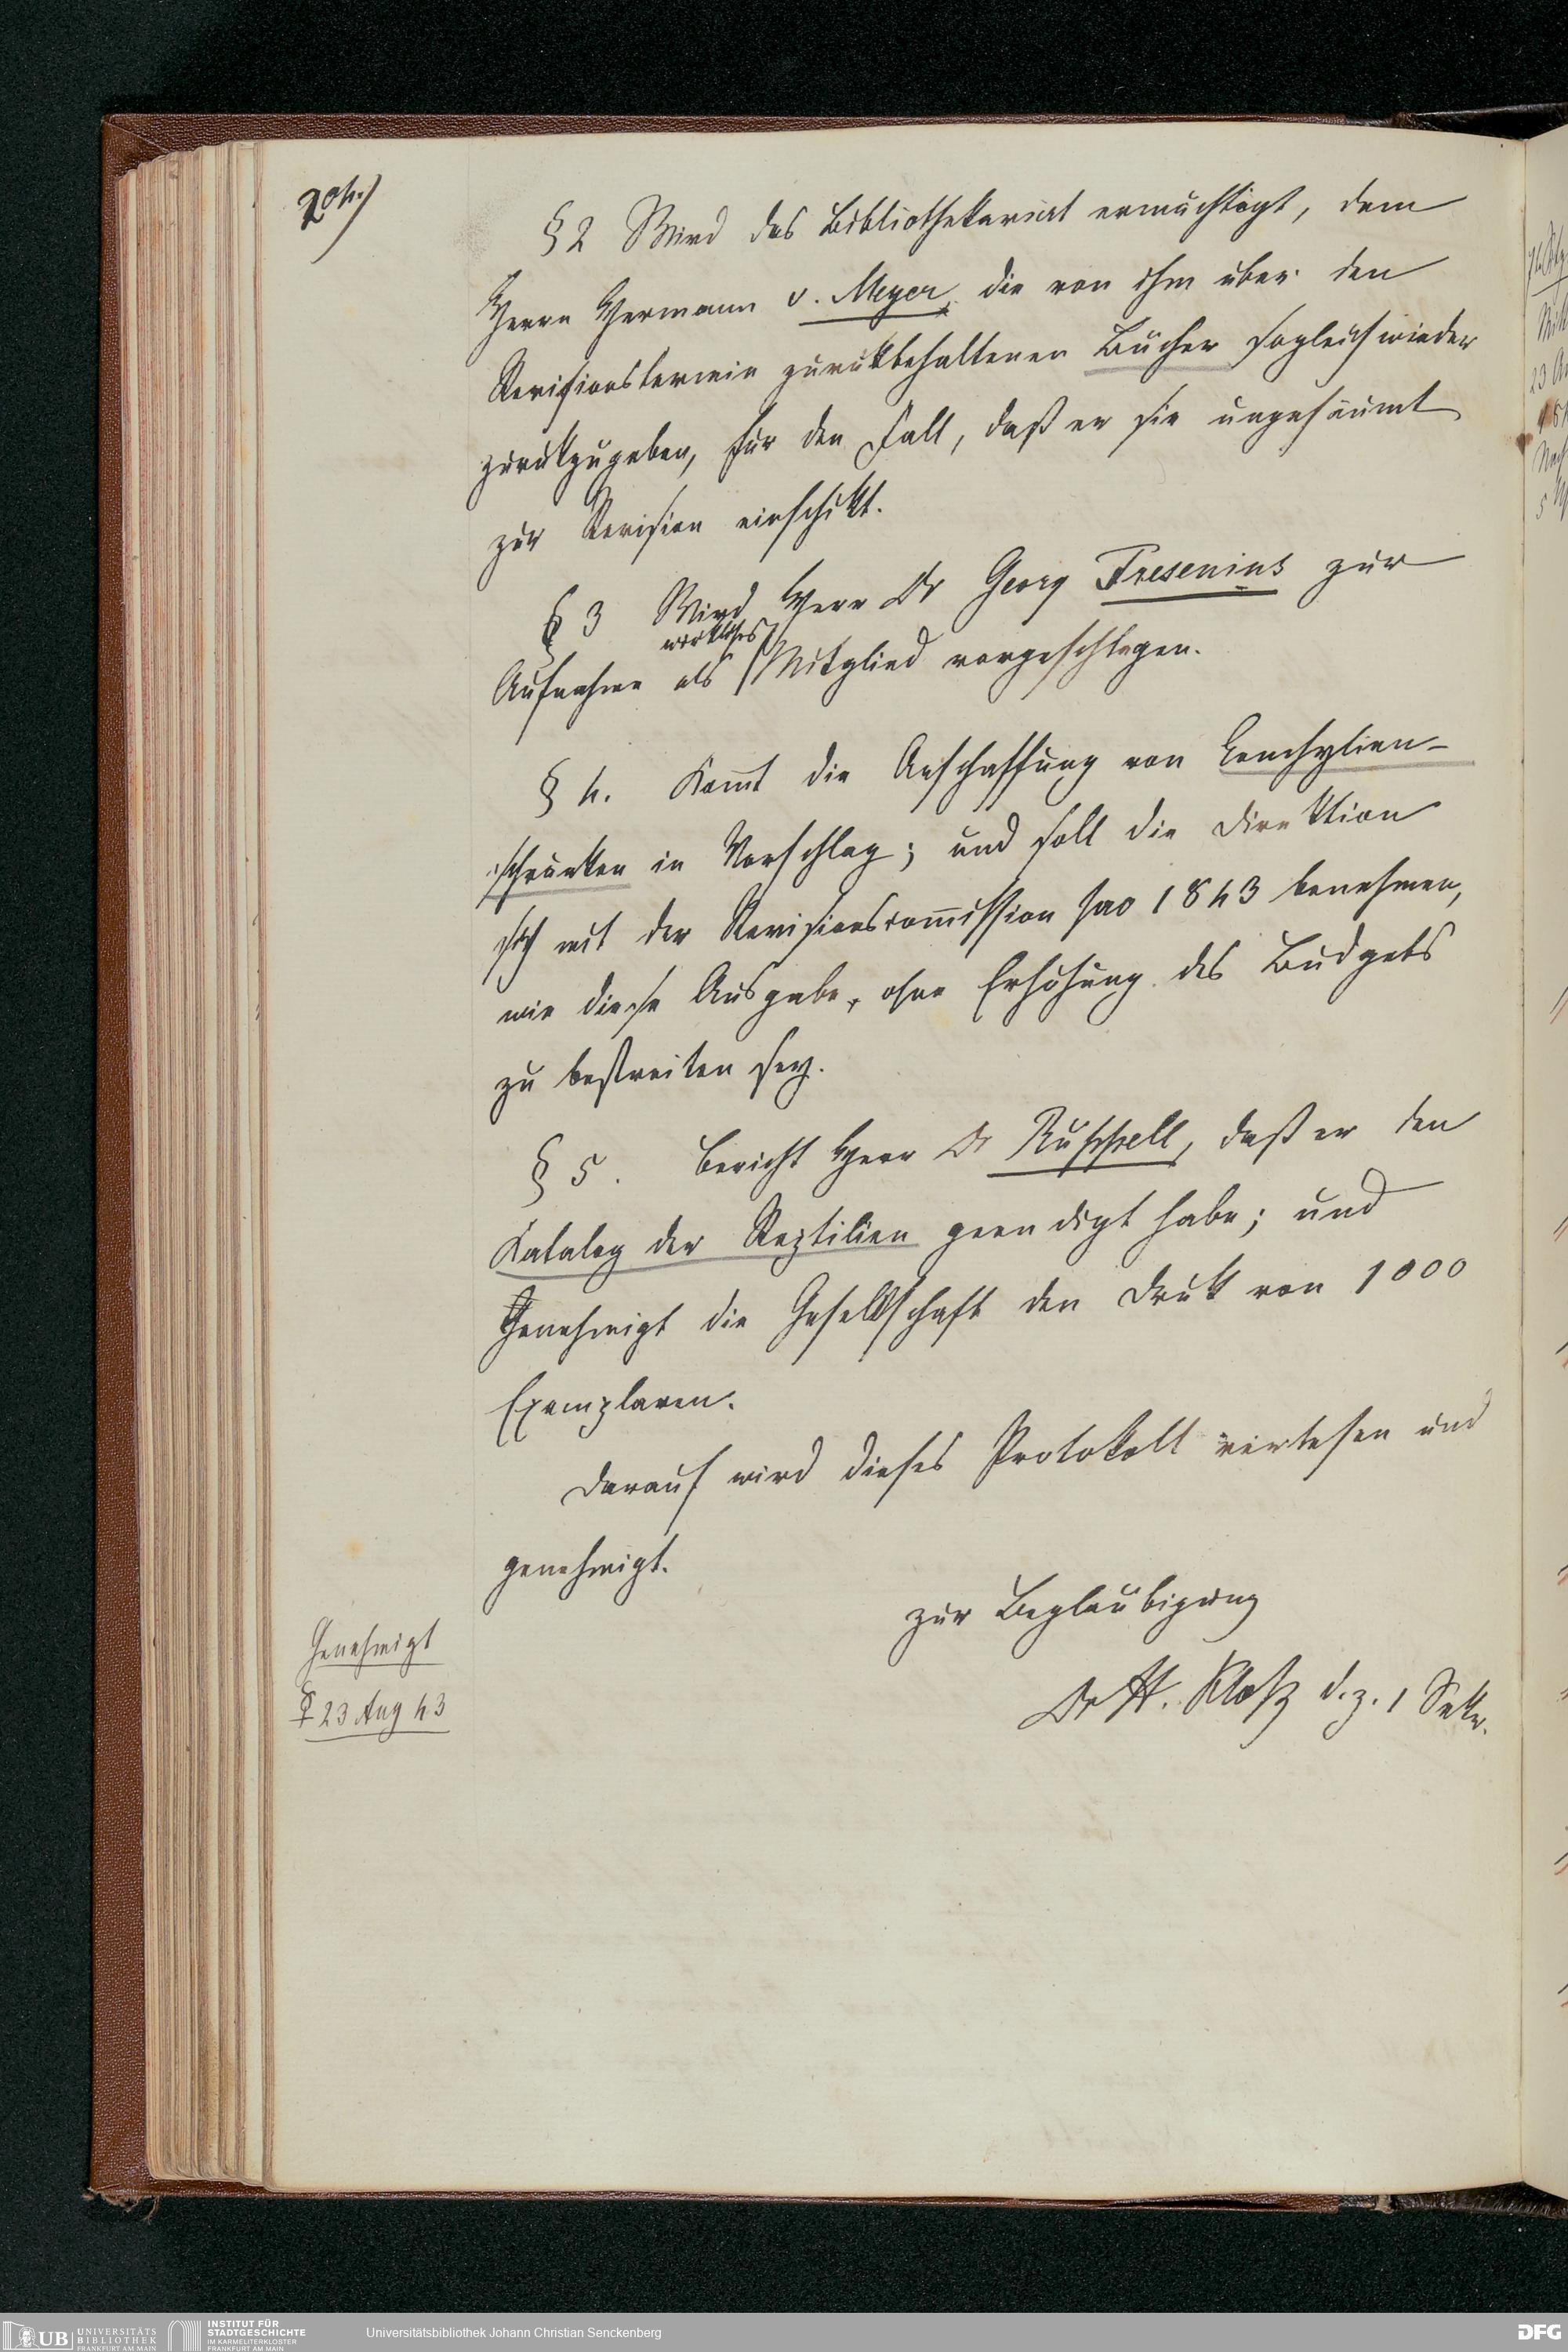 204.)
§ 2 Wird das Bibliothekariat ermächtigt, dem
Herrn Hermann v. Meyer, die von ihm über den
Revisionstermin zurükbehaltenen Bücher sogleich wieder
zurükzugeben, für den Fall, daß er sie ungesäumt
zur Revision einschikt.
§ 3 Wird Herr Dr Georg Fresenius zur
wirkliches
Aufnahme als Mitglied vorgeschlagen.
§ 4. Kom̄t die Anschaffung von Conchylien-
schränken in Vorschlag; und soll die Direktion
sich mit der Revisionscom̄ission pro 1843 benehmen,
wie diese Ausgabe, ohne Erhöhung des Budgets
zu bestreiten sey.
§ 5. Bericht Herr Dr Rüppell, daß er den
Katalog der Reptilien geendigt habe; und
Genehmigt die Gesellschaft den Druk von 1000
Exemplaren.
Darauf wird dieses Protokoll verlesen und
genehmigt.
zur Beglaubigung
Dr H. Kloß d. z. 1 Sekr.
Genehmigt
☿ 23 Aug 43
23
UB UNIVERSITÄTS
BIBLIOTHEK
FRANKFURT AM MAIN
INSTITUT FÜR
STADTGESCHICHTE
IM KARMELITERKLOSTER
FRANKFURT AM MAIN
Universitätsbibliothek Johann Christian Senckenberg
DFG